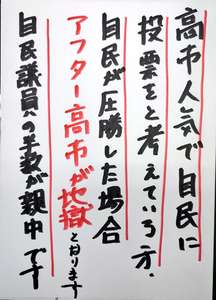 高市人気で自民に
投票をと考えている方・
自民が圧勝した場合
アフター高市が地獄となります
自民議員の半数が親中です